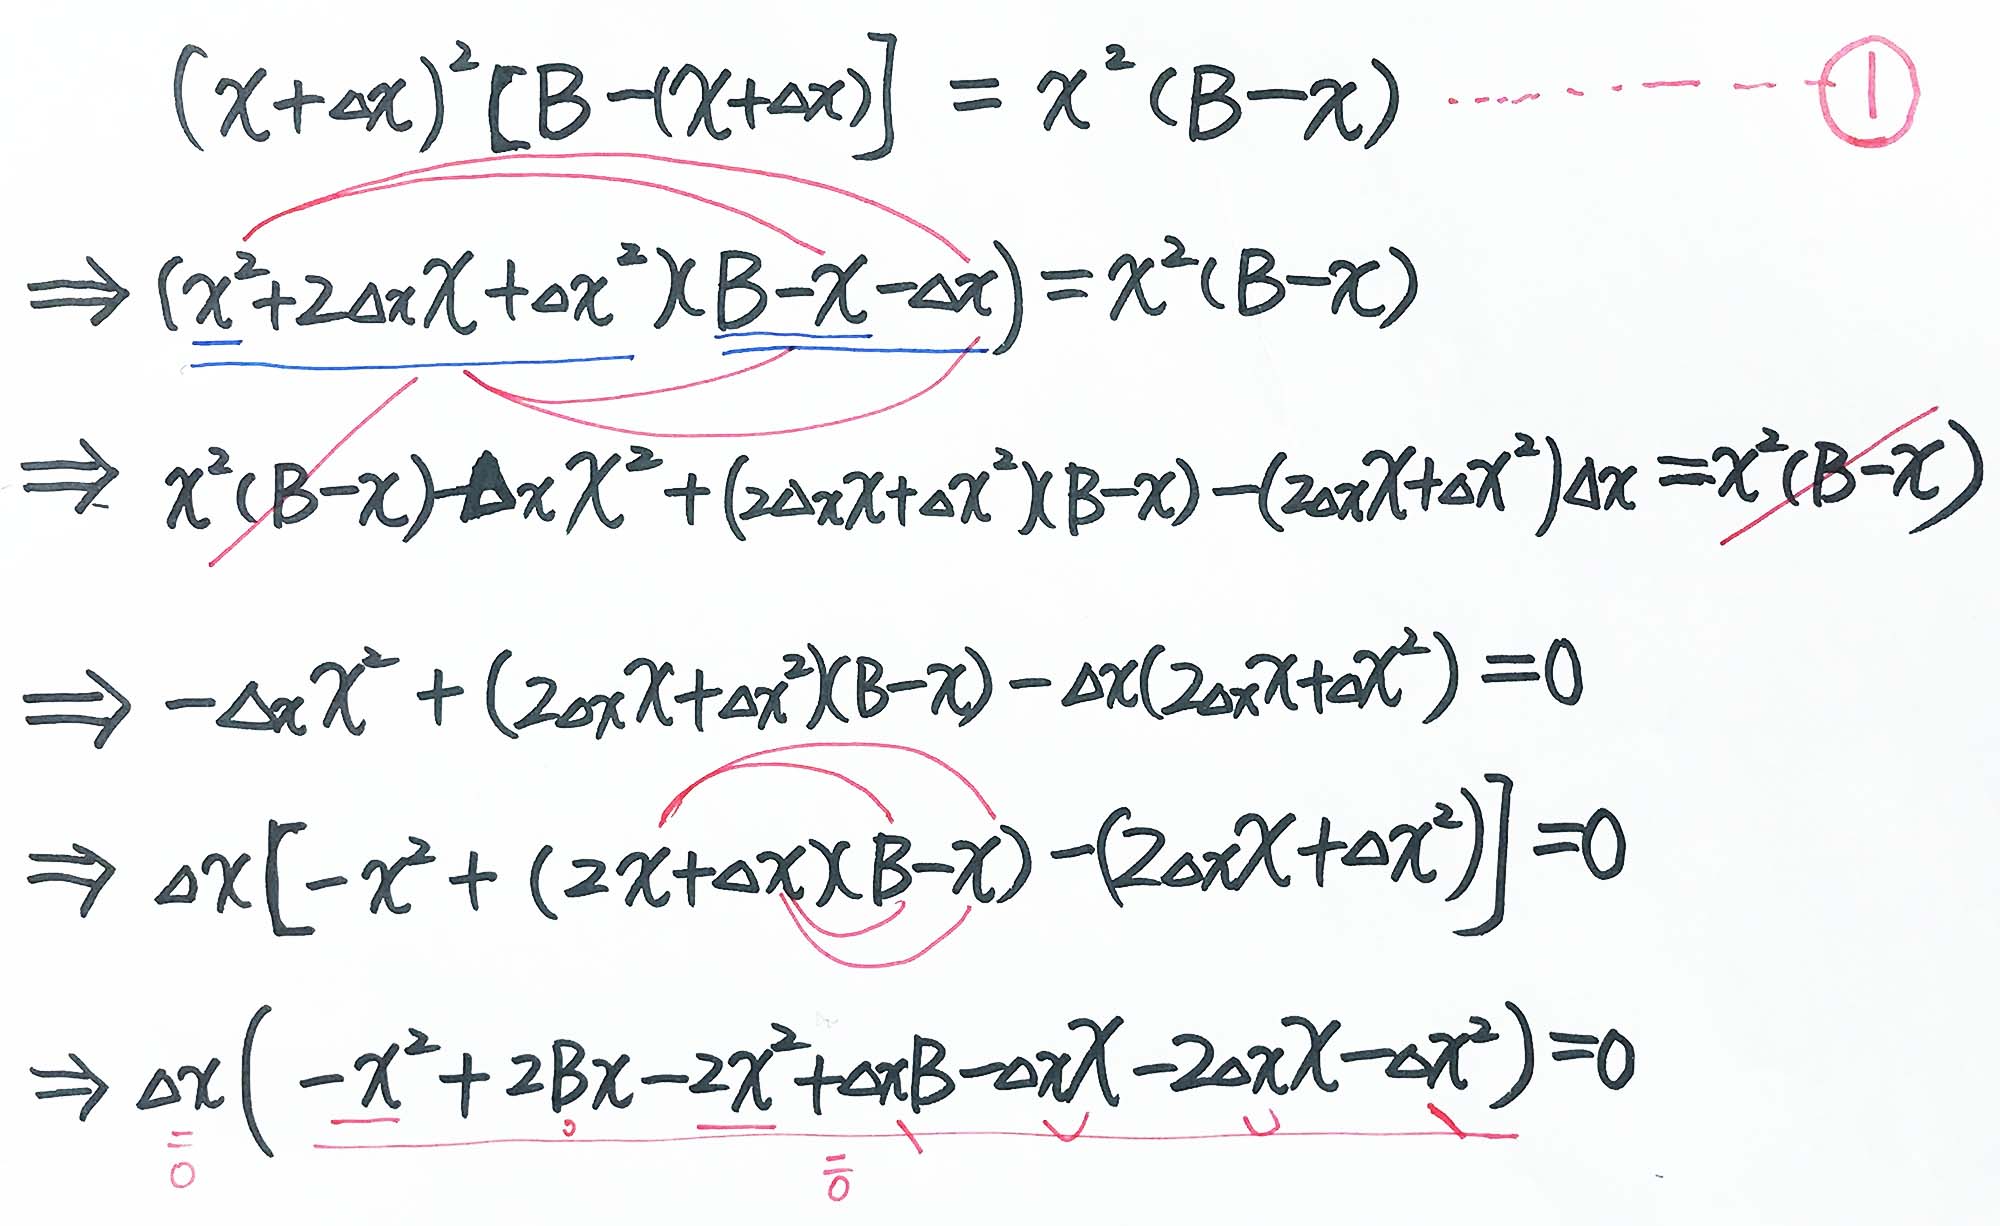 (x+Δx)²[B-(x+Δx)] = x²(B-x) ......... ①
⇒ (x²+2ΔxX+Δx²)(B-x-Δx) = x²(B-x)
⇒ x²(B-x)-ΔxX²+(2Δxx+Δx²)(B-x)-(2Δxx+Δx²)Δx = x²(B-x)
⇒ -ΔxX²+(2Δxx+Δx²)(B-x)-Δx(2Δxx+Δx²) = 0
⇒ Δx[-x²+(2x+Δx)(B-x)-(2Δxx+Δx²)] = 0
⇒ Δx(-x²+2Bx-2x²+ΔxB-Δxx-2Δxx-Δx²) = 0
= 0 = 0